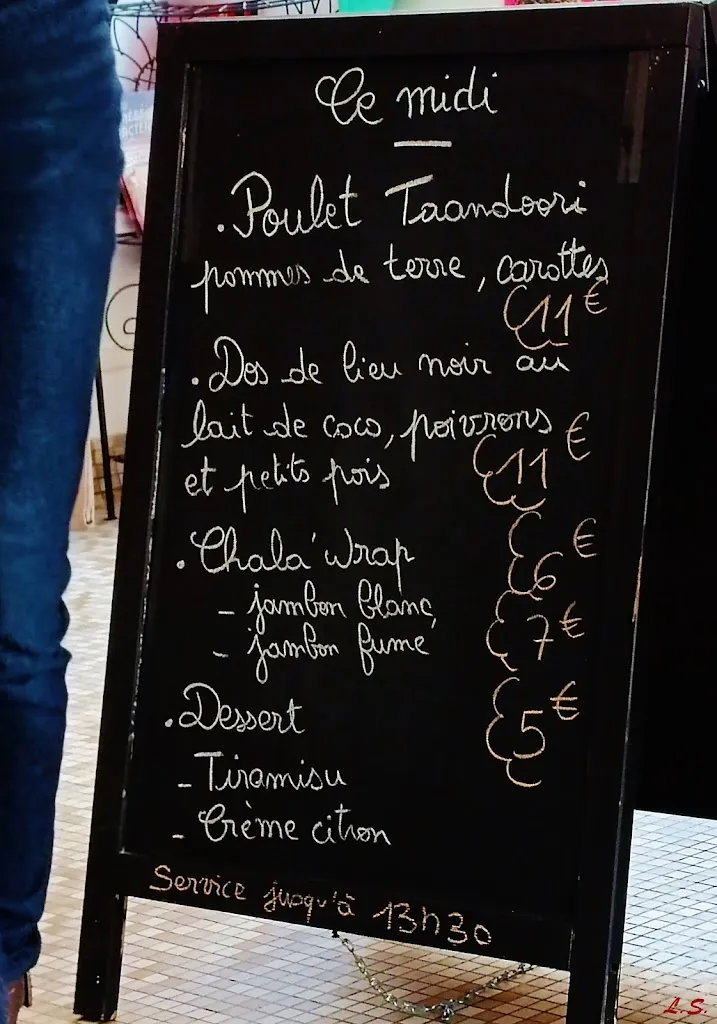 Ce midi
. Poulet Taandoori
pommes de terre, carottes
11€
. Dos de lieu noir au
lait de coco, poivrons
et petits pois
11€
. Chala'wrap
- jambon blanc 6€
- jambon fumé 7€
. Dessert 5€
- Tiramisu
- Crème citron
Service jusqu'à 13h30
L.S.